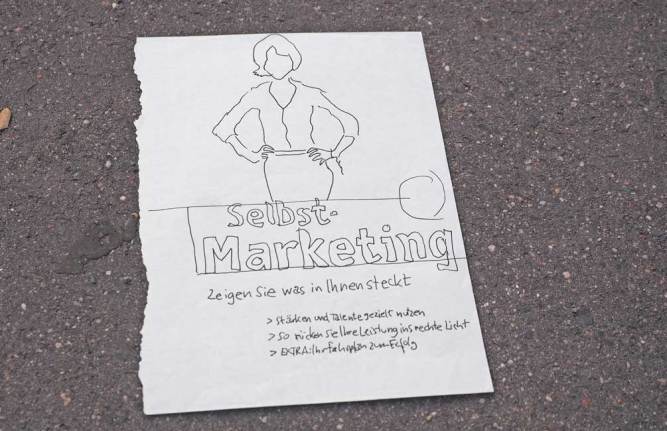 Selbst-
Marketing
Zeigen Sie was in Ihnen steckt
> Stärken und Talente gezielt nutzen
> So rücken Sie Ihre Leistung ins rechte Licht
> EXTRA: Ihr Fahrplan zum Erfolg